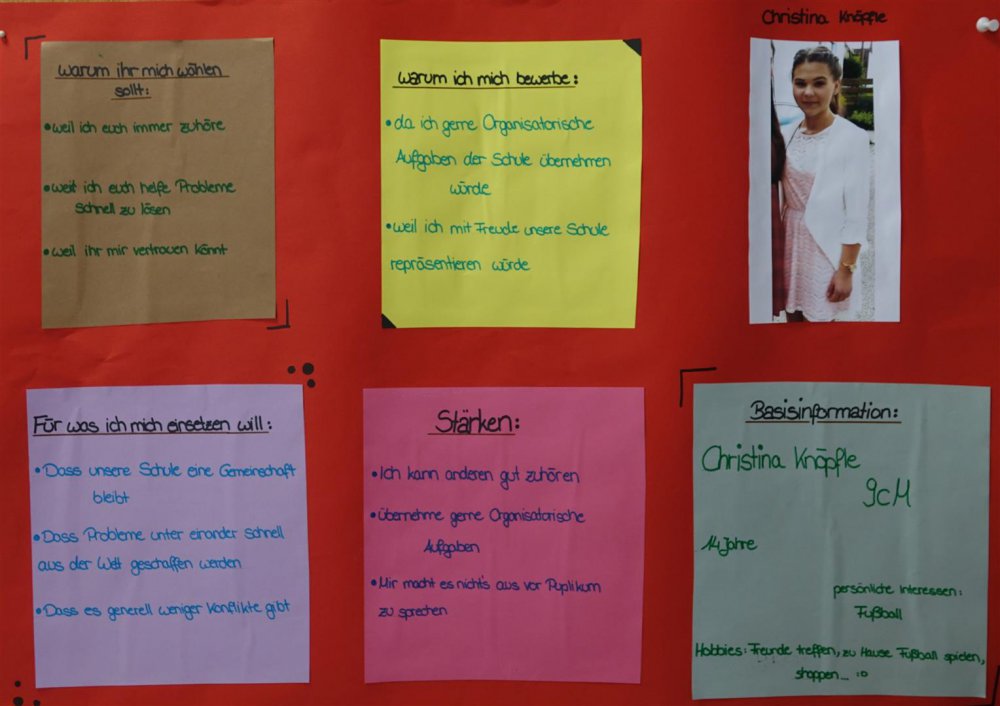 Christina Knöpfle
Warum ihr mich wählen
sollt:
• weil ich euch immer zuhöre
• weil ich euch helfe Probleme
schnell zu lösen
• weil ihr mir vertrauen könnt
Warum ich mich bewerbe:
• da ich gerne Organisatorische
Aufgaben der Schule übernehmen
würde
• weil ich mit Freude unsere Schule
repräsentieren würde
Für was ich mich einsetzen will:
• Dass unsere Schule eine Gemeinschaft
bleibt
• Dass Probleme unter einander schnell
aus der Welt geschaffen werden
• Dass es generell weniger Konflikte gibt
Stärken:
• Ich kann anderen gut zuhören
• übernehme gerne Organisatorische
Aufgaben
• Mir macht es nicht's aus vor Puplikum
zu sprechen
Basisinformation:
Christina Knöpfle
9cM
14 Jahre
persönliche Interessen:
Fußball
Hobbies: Freunde treffen, zu Hause Fußball spielen,
shoppen... :D